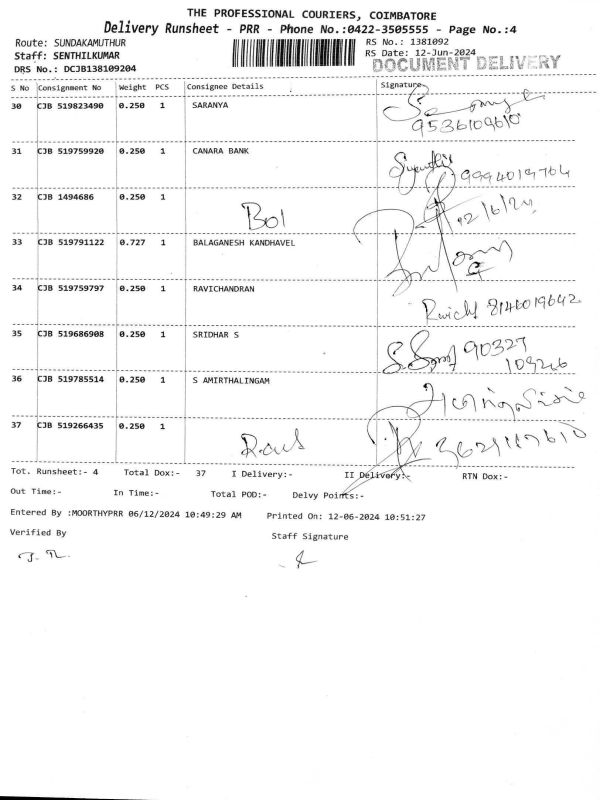 THE PROFESSIONAL COURIERS, COIMBATORE
Delivery Runsheet - PRR - Phone No.:0422-3505555 - Page No.:4
Route: SUNDAKAMUTHUR
RS No.: 1381092
Staff: SENTHILKUMAR
RS Date: 12-Jun-2024
DRS No.: DCJB138109204
DOCUMENT DELIVERY
S No Consignment No Weight PCS Consignee Details Signature
30 CJB 519823490 0.250 1 SARANYA
9536109610
31 CJB 519759920 0.250 1 CANARA BANK
9994019764
32 CJB 1494686 0.250 1
BOI
12/6/24
33 CJB 519791122 0.727 1 BALAGANESH KANDHAVEL
34 CJB 519759797 0.250 1 RAVICHANDRAN
8146019642
35 CJB 519686908 0.250 1 SRIDHAR S
90327
36 CJB 519785514 0.250 1 S AMIRTHALINGAM
37 CJB 519266435 0.250 1
Tot. Runsheet:- 4 Total Dox:- 37 I Delivery:- II Delivery:- RTN Dox:-
Out Time:- In Time:- Total POD:- Delvy Points:-
Entered By :MOORTHYPRR 06/12/2024 10:49:29 AM Printed On: 12-06-2024 10:51:27
Verified By
Staff Signature